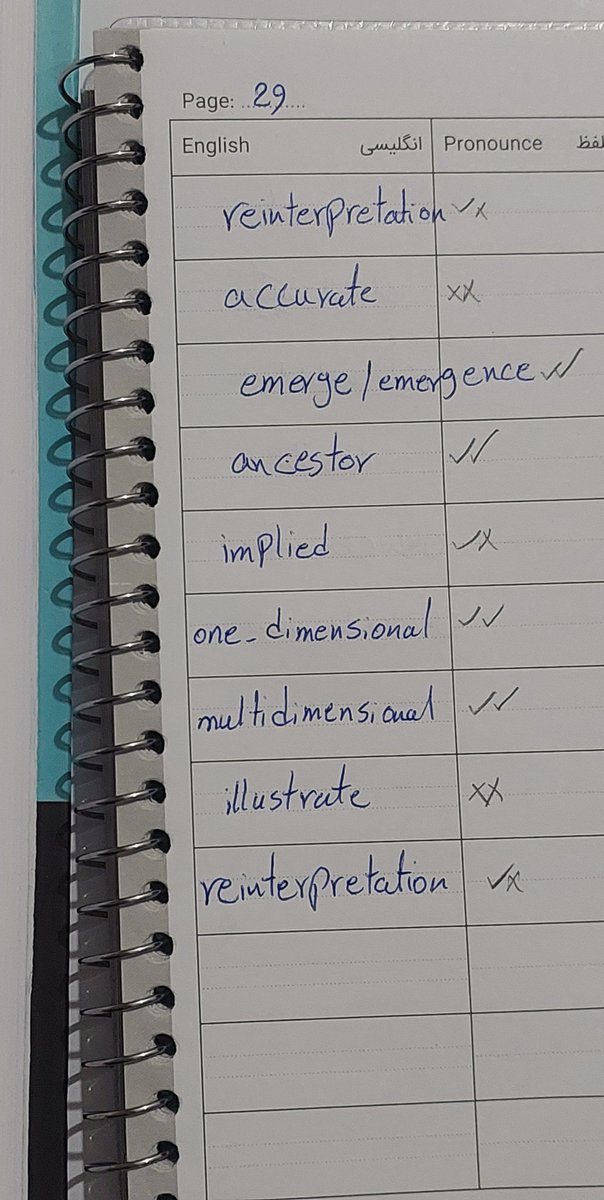 Page: 29
English انگلیسی Pronounce
reinterpretation ✓x
accurate xx
emerge/emergence ✓✓
ancestor ✓✓
implied ✓x
one-dimensional ✓✓
multidimensional ✓✓
illustrate xx
reinterpretation ✓x